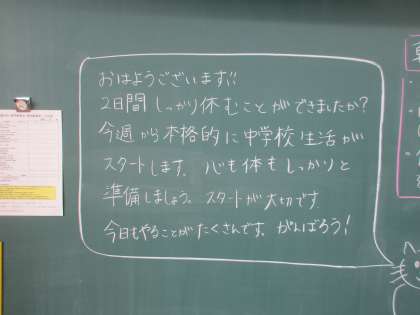 おはようございます!!
2日間 しっかり休むことができましたか?
今週から本格的に中学校生活が
スタートします。心も体もしっかりと
準備しましょう。スタートが大切です。
今日もやることがたくさんです。がんばろう!